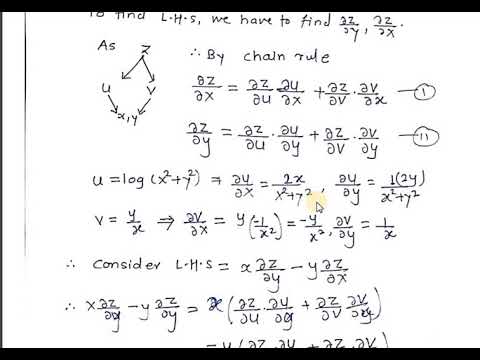 To find L.H.S, we have to find ∂z/∂y, ∂z/∂x.
As z ∴ By chain rule
u v
x,y
∂z/∂x = ∂z/∂u · ∂u/∂x + ∂z/∂v · ∂v/∂x — I
∂z/∂y = ∂z/∂u · ∂u/∂y + ∂z/∂v · ∂v/∂y — II
u = log(x²+y²) ⇒ ∂u/∂x = 2x/x²+y², ∂u/∂y = 1(2y)/x²+y²
v = y/x ⇒ ∂v/∂x = y(-1/x²) = -y/x², ∂v/∂y = 1/x
∴ Consider L.H.S = x ∂z/∂y - y ∂z/∂x
∴ x ∂z/∂y - y ∂z/∂y = x(∂z/∂u · ∂u/∂y + ∂z/∂v ∂v/∂y)
-y(∂z · ∂u + ∂z · ∂v